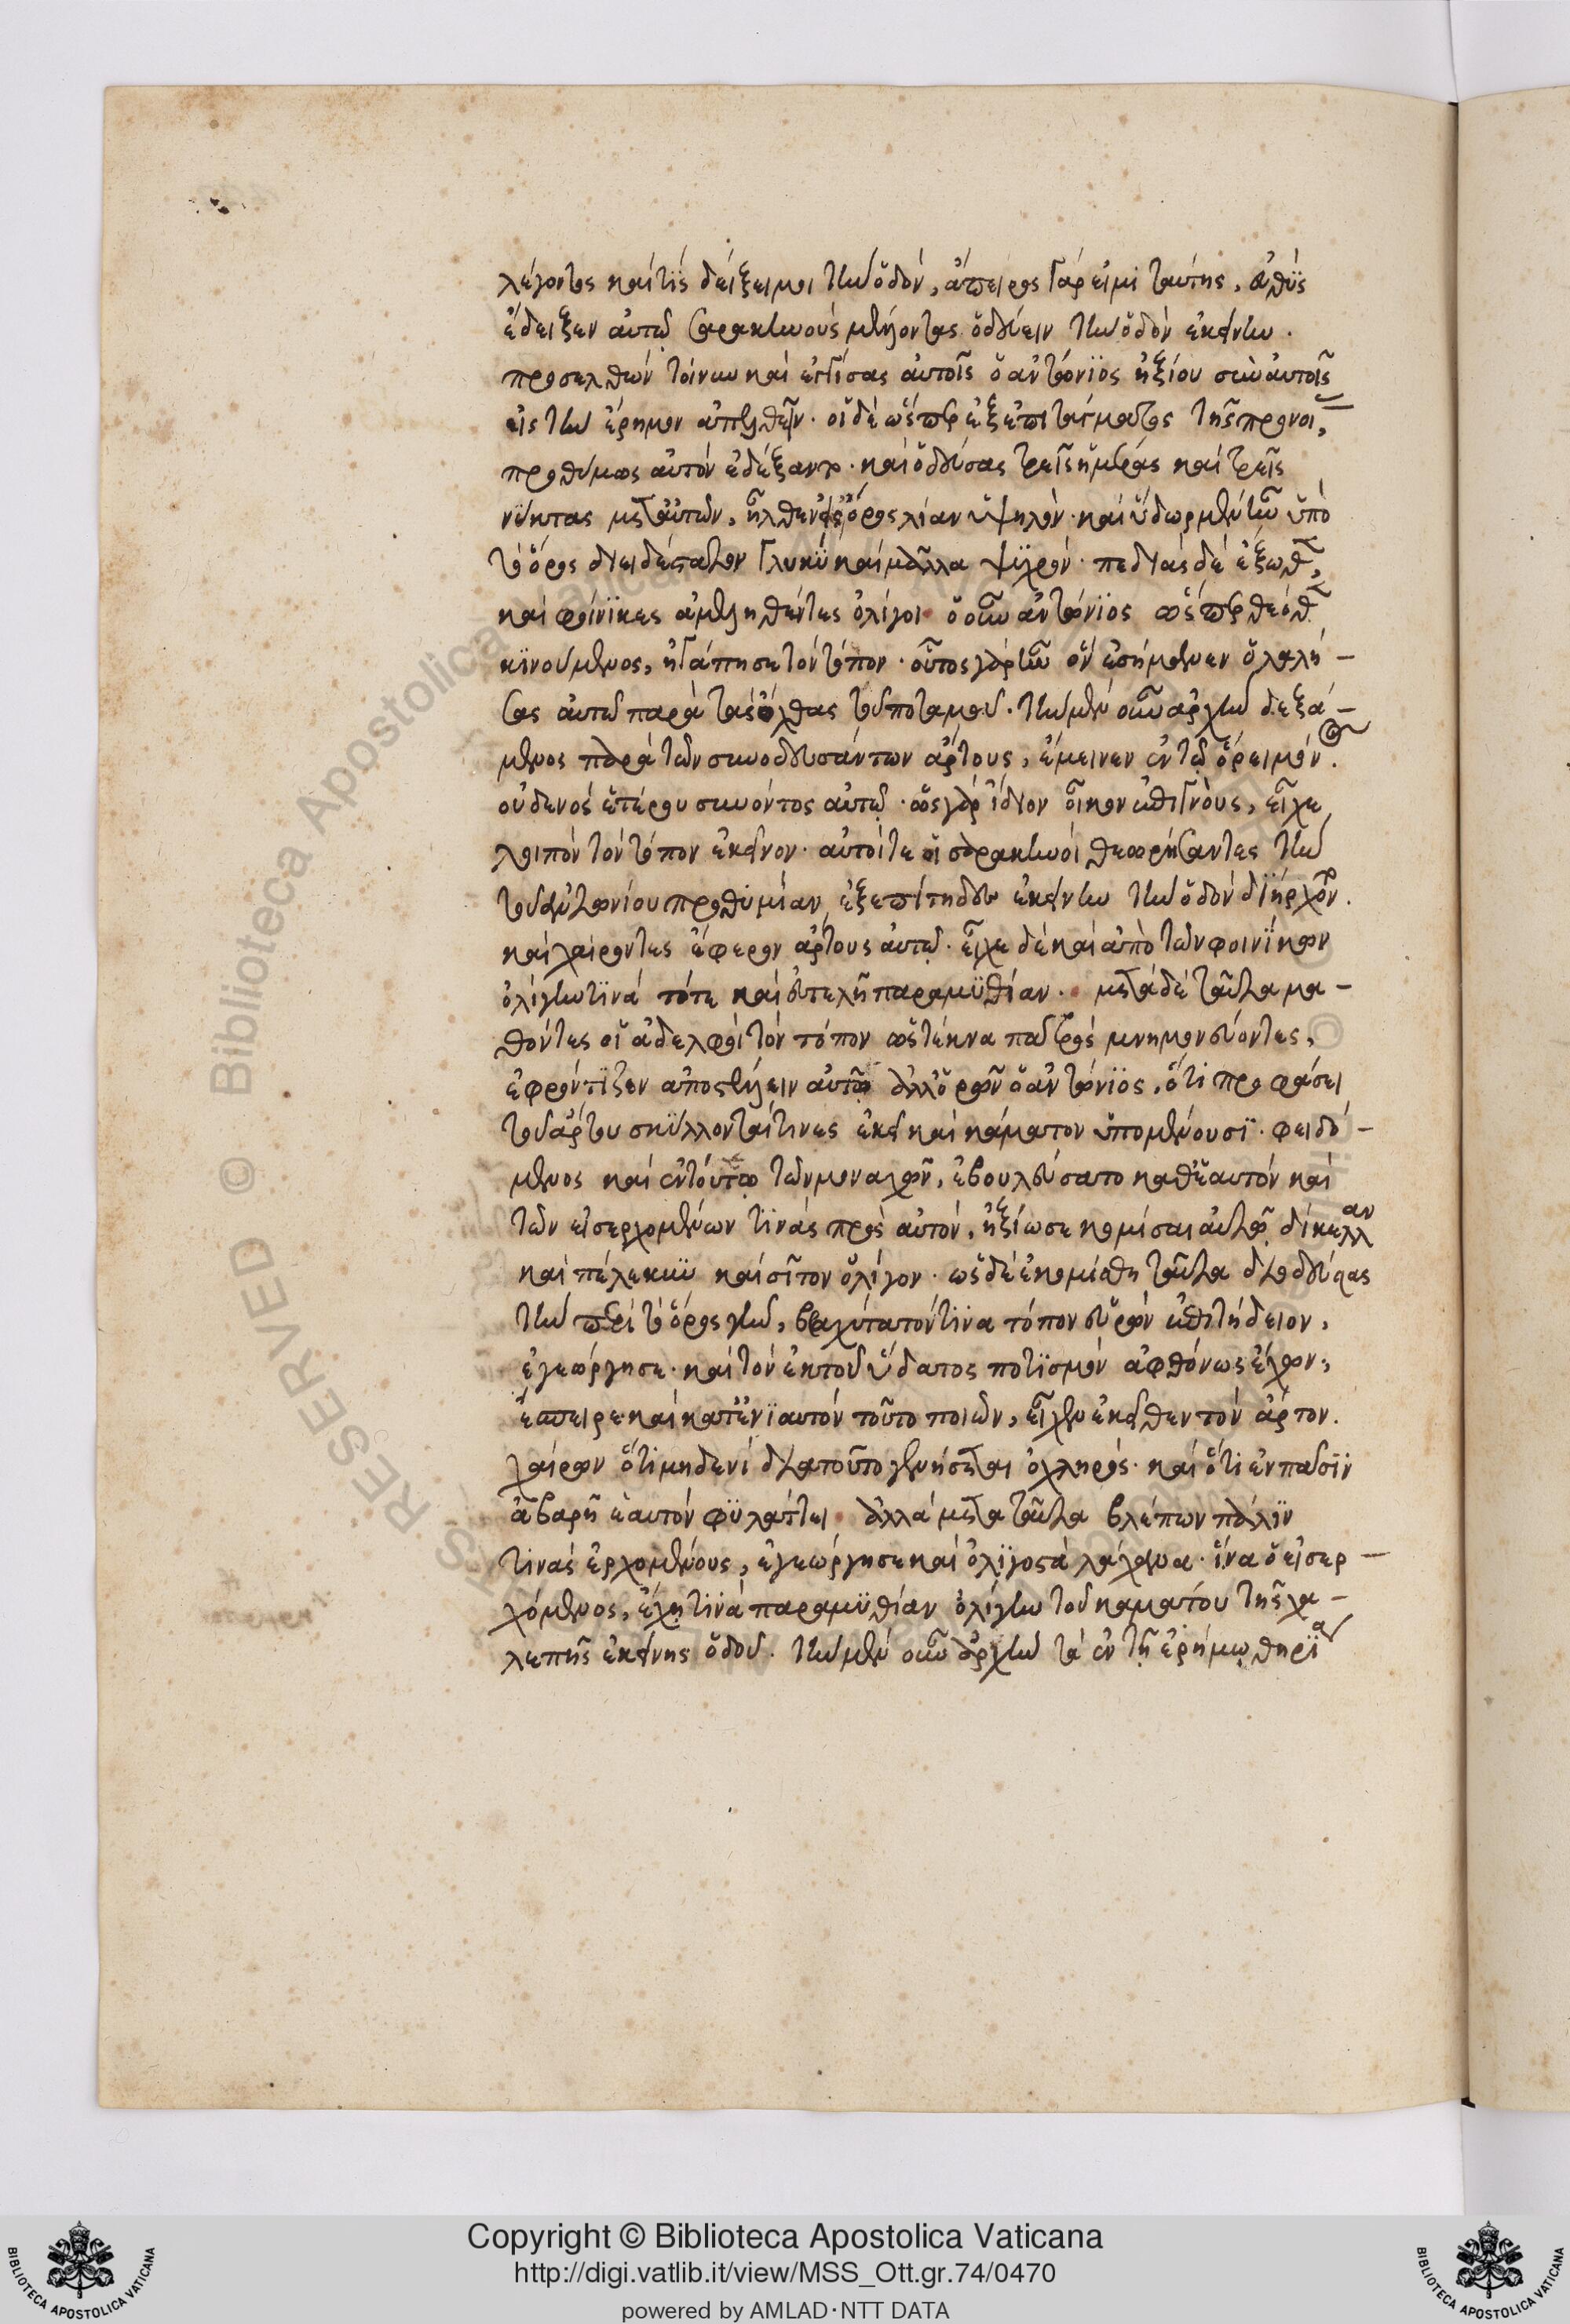 λέγοντος καὶ τίς δείξει μοι τὴν ὁδόν, ἄπειρος γάρ εἰμι ταύτης, εὐθὺς
ἔδειξεν αὐτῷ Σαρακηνοὺς μέλλοντας ὁδεύειν τὴν ὁδὸν ἐκείνην.
προσελθὼν τοίνυν καὶ ἐγγίσας αὐτοῖς ὁ ἀντώνϊος ἠξίου σὺν αὐτοῖς
εἰς τὴν ἔρημον ἀπελθεῖν. οἱ δὲ ὥσπερ ἐξ ἐπιτάγματος τῆς προνοί,
προθύμως αὐτὸν ἐδέξαντο. καὶ ὁδεύσας τρεῖς ἡμέρας καὶ τρεῖς
νύκτας μετ' αὐτῶν, ἦλθεν εἰς ὄρος λίαν ὑψηλόν. καὶ ὕδωρ μὲν ἦν ὑπὸ
τὸ ὄρος διειδέστατον γλυκὺ καὶ μάλα ψυχρόν. πεδιὰς δὲ ἔξωθ,
καὶ φοίνϊκες ἀμεληθέντες ὀλίγοι. ὁ οὖν ἀντώνϊος ὥσπερ θεόθ
κϊνούμενος, ἠγάπησε τὸν τόπον. οὗτος γὰρ ἦν ὃν ἐσήμανεν ὁ λαλή-
σας αὐτῷ παρὰ τὰς ὄχθας τοῦ ποταμοῦ. τὴν μὲν οὖν ἀρχὴν δεξά-
μενος παρὰ τῶν συνοδευσάντων ἄρτους, ἔμεινεν ἐν τῷ ὄρει μόνος.
οὐδενὸς ἑτέρου συνόντος αὐτῷ. ὡς γὰρ ἴδιον οἶκον ἐπιγνοὺς, εἶχε
λοιπὸν τὸν τόπον ἐκεῖνον. αὐτοί τε οἱ σαρακηνοὶ θεωρήσαντες τὴν
τοῦ ἀντωνίου προθυμίαν, ἐξεπίτηδες ἐκείνην τὴν ὁδὸν διήρχον.
καὶ χαίροντες ἔφερον ἄρτους αὐτῷ. εἶχε δὲ καὶ ἀπὸ τῶν φοινίκων
ὀλίγην τϊνὰ τότε καὶ εὐτελῆ παραμϋθίαν. μετὰ δὲ ταῦτα μα-
θόντες οἱ ἀδελφοὶ τὸν τόπον ὡς τέκνα πατρὸς μνημονεύοντες,
ἐφρόντϊζεν ἀποστέλλειν αὐτῷ ἀλλ' ὁρῶν ὁ ἀντώνϊος, ὅτι προφάσει
τοῦ ἄρτου σκύλλονταί τινες ἐκεῖ καὶ κάματον ὑπομένουσϊ. φειδό-
μενος καὶ ἐν τούτῳ τῶν μοναχῶν, ἐβουλεύσατο καθ' ἑαυτὸν καὶ
τῶν εἰσερχομένων τϊνὰς πρὸς αὐτὸν, ἠξίωσε κομίσαι αὐτῷ δίκελλαν
καὶ πέλεκυν καὶ σῖτον ὀλίγον. ὡς δὲ ἐκομίσθη ταῦτα διοδεύσας
τὴν περὶ τὸ ὄρος γῆν, βραχύτατόν τϊνα τόπον εὑρὼν ἐπιτήδειον,
ἐγεώργησε. καὶ τὸν ἐκ τοῦ ὕδατος ποτϊσμὸν ἀφθόνως ἔχων,
ἔσπειρε. καὶ κατ' ἐνϊαυτὸν τοῦτο ποιῶν, εἶχεν ἐκεῖθεν τὸν ἄρτον.
χαίρων ὅτι μηδενὶ διὰ τοῦτο γενήσεται ὀχληρός. καὶ ὅτι ἐν πᾶσϊν
ἀβαρῆ ἑαυτὸν φϋλάττει. ἀλλὰ μετὰ ταῦτα βλέπων πάλϊν
τινὰς ἐρχομένους, ἐγεώργησε καὶ ὀλϊγοστὰ λάχανα. ἵνα ὁ εἰσερ-
χόμενος, ἔχῃ τϊνὰ παραμϋθίαν ὀλίγην τοῦ καμάτου τῆς χα-
λεπῆς ἐκείνης ὁδοῦ. τὴν μὲν οὖν ἀρχὴν τὰ ἐν τῇ ἐρήμῳ θηρία
Copyright © Biblioteca Apostolica Vaticana
http://digi.vatlib.it/view/MSS_Ott.gr.74/0470
powered by AMLAD·NTT DATA